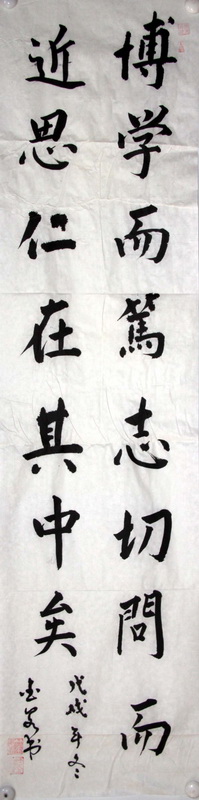 博学而篤志切問而
近思仁在其中矣
戊戌年冬